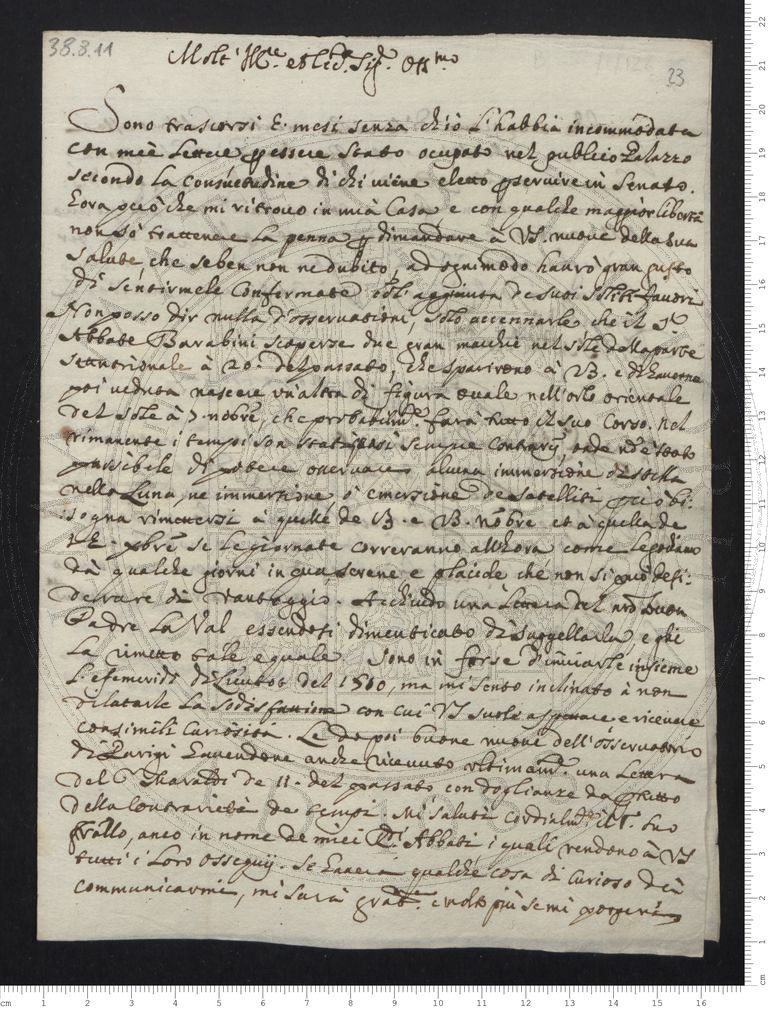 38.8.11
23
Molt' Ill.re et Ecc.te Sig.r Oss.mo
Sono trascorsi 2. mesi senza ch'io l'habbia incommodata
con mie lettere p essere stato ocupato nel publico Palazzo
secondo la consuetudine di chi viene eletto p servire in Senato.
Hora però che mi ritrovo in mia Casa e con qualche maggior libertà
non sò trattenere la penna p dimandare à VS. nuove della sua
salute, che se ben non ne dubito, ad ogni modo havrò gran gusto
di sentirmele confermate coll' aggiunta de suoi soliti favori
Non posso dir nulla d'osservationi, solo accennarle che il S.r
Abbate Barabini scoperse due gran macchie nel Sole dalla parte
settentrionale à 20. del passato, che sparirono à 23. e di haverne
poi veduta nascere un'altra di figura ovale nell'orlo orientale
del Sole à 7. nobre, che probabilm.te farà tutto il suo Corso. Nel
rimanente i tempi son stati quasi sempre contrarij, onde nõ è stato
possibile di potere osservare alcuna immersione di stella
nella Luna, ne immersione ò emersione de Satelliti, però bi:
:sogna rimettersi à quelle de 13. e 23. nobre et à quella de
12. xbre se le giornate correranno allhora come le godiamo
dà qualche giorni in quà, serene e placide che non si può desi:
derare di vantaggio. Acchiudo una lettera del nro buon
Padre La Val essendosi dimenticato di suggellarla, e glie
la rimetto tale e quale. Sono in forse d'inviarle insieme
l'efemeridi di del 1500, ma mi sento inclinato à non
dilatarle la sodisfattione con cui VS suole aspettare e ricevere
consimili curiosità. Le do poi buone nuove dell'Osservatorio
di Parigi havendone anche ricevuto ultimam.te una lettera
del S.r Maraldi de 11. del passato con doglianze da p tutto
della contrarietà de tempi. Mi saluti cordialm.te il S.r suo
fratello, anco in nome de miei SS.ri Abbati i quali rendono à VS
tutti i loro ossequij. Se haverà qualche cosa di curioso dà
communicarmi, mi sarà grat.mo e molto più se mi porgerà